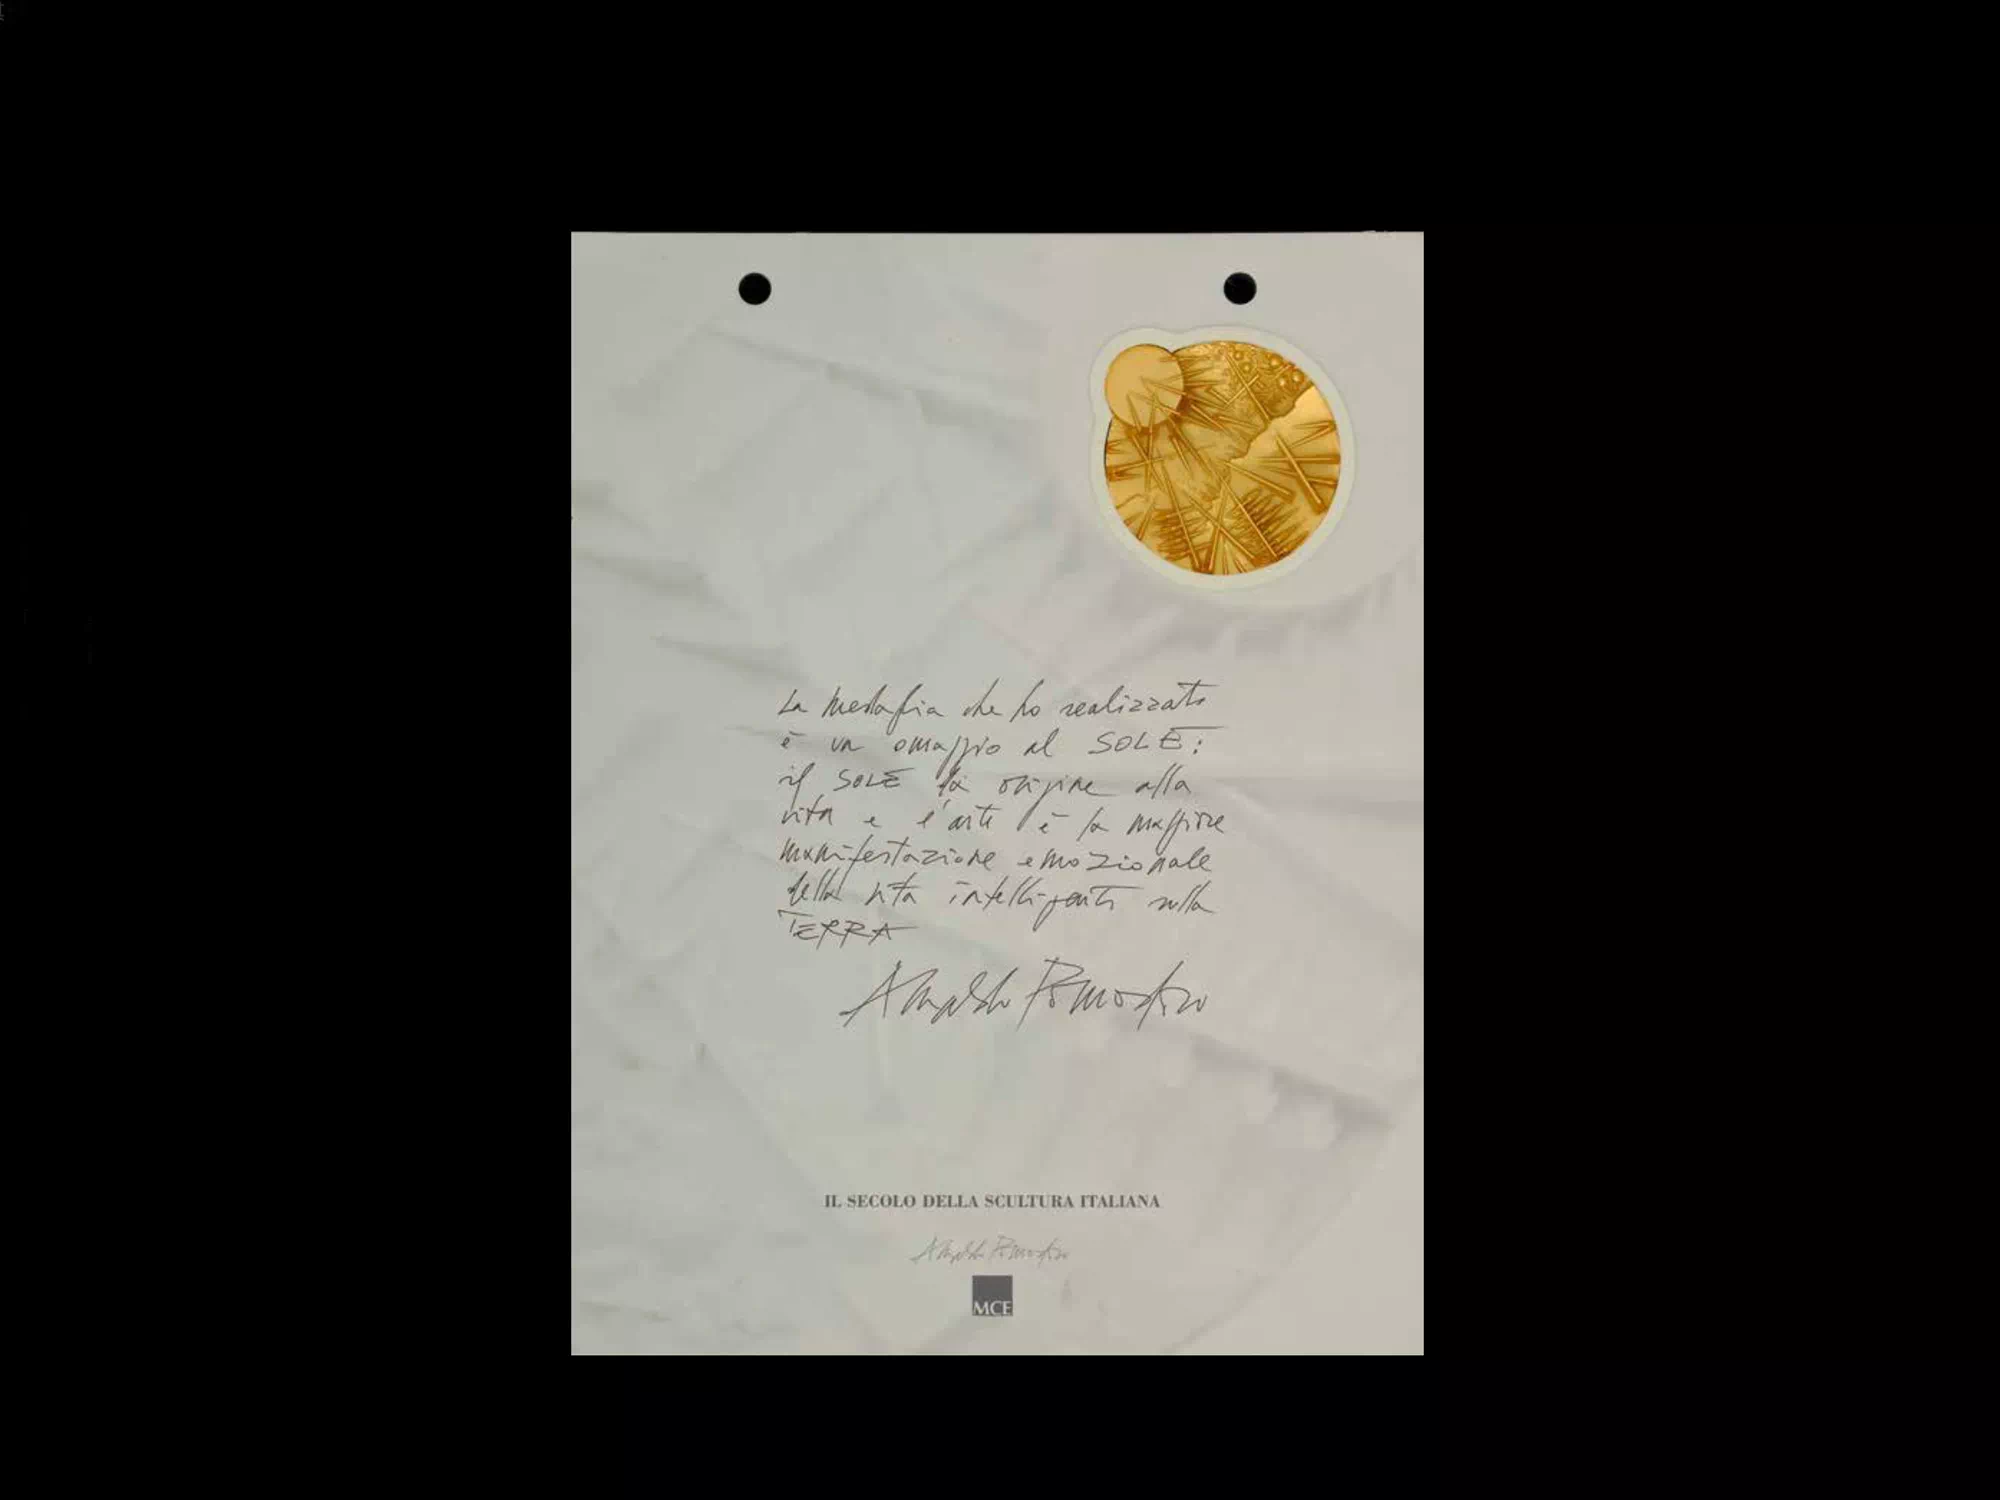 La medaglia che ho realizzato
è un omaggio al SOLE:
il SOLE dà origine alla
vita e l'arte è la maggiore
manifestazione emozionale
della vita intelligente sulla
TERRA
Arnaldo Pomodoro
IL SECOLO DELLA SCULTURA ITALIANA
Arnaldo Pomodoro
MCE